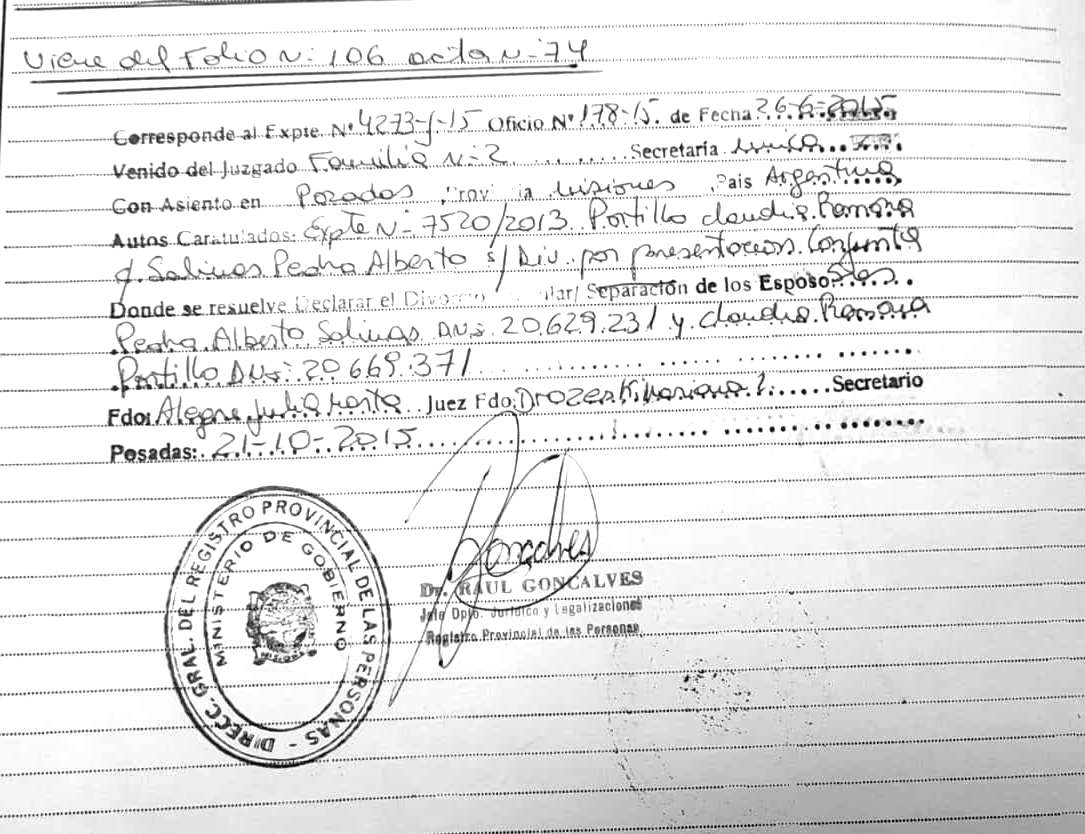 Viene del Folio N: 106 acta N-74
Corresponde al Expte. Nº 4273-J-15 Oficio Nº 178-15. de Fecha 26-6-2015
Venido del Juzgado Familia N-2 Secretaría
Con Asiento en Posadas Provincia Misiones País Argentina
Autos Caratulados: Expte N- 7520/2013 Portillo Claudia Ramona
Salinas Pedro Alberto s/ Div. por presentacion Conjunta
Donde se resuelve Declarar el Divorcio Separación de los Esposos
Pedro Alberto Salinas DNI: 20.629.231 y Claudia Ramona
Portillo DNI: 20 669.371
Fdo: Alegre Julia Juez Fdo: Secretario
Posadas: 21-10-2015
DIRECC. GRAL. DEL REGISTRO PROVINCIAL DE LAS PERSONAS
MINISTERIO DE GOBIERNO
Dr. RAUL GONCALVES
Jefe Dpto. Jurídico y Legalizaciones
Registro Provincial de las Personas